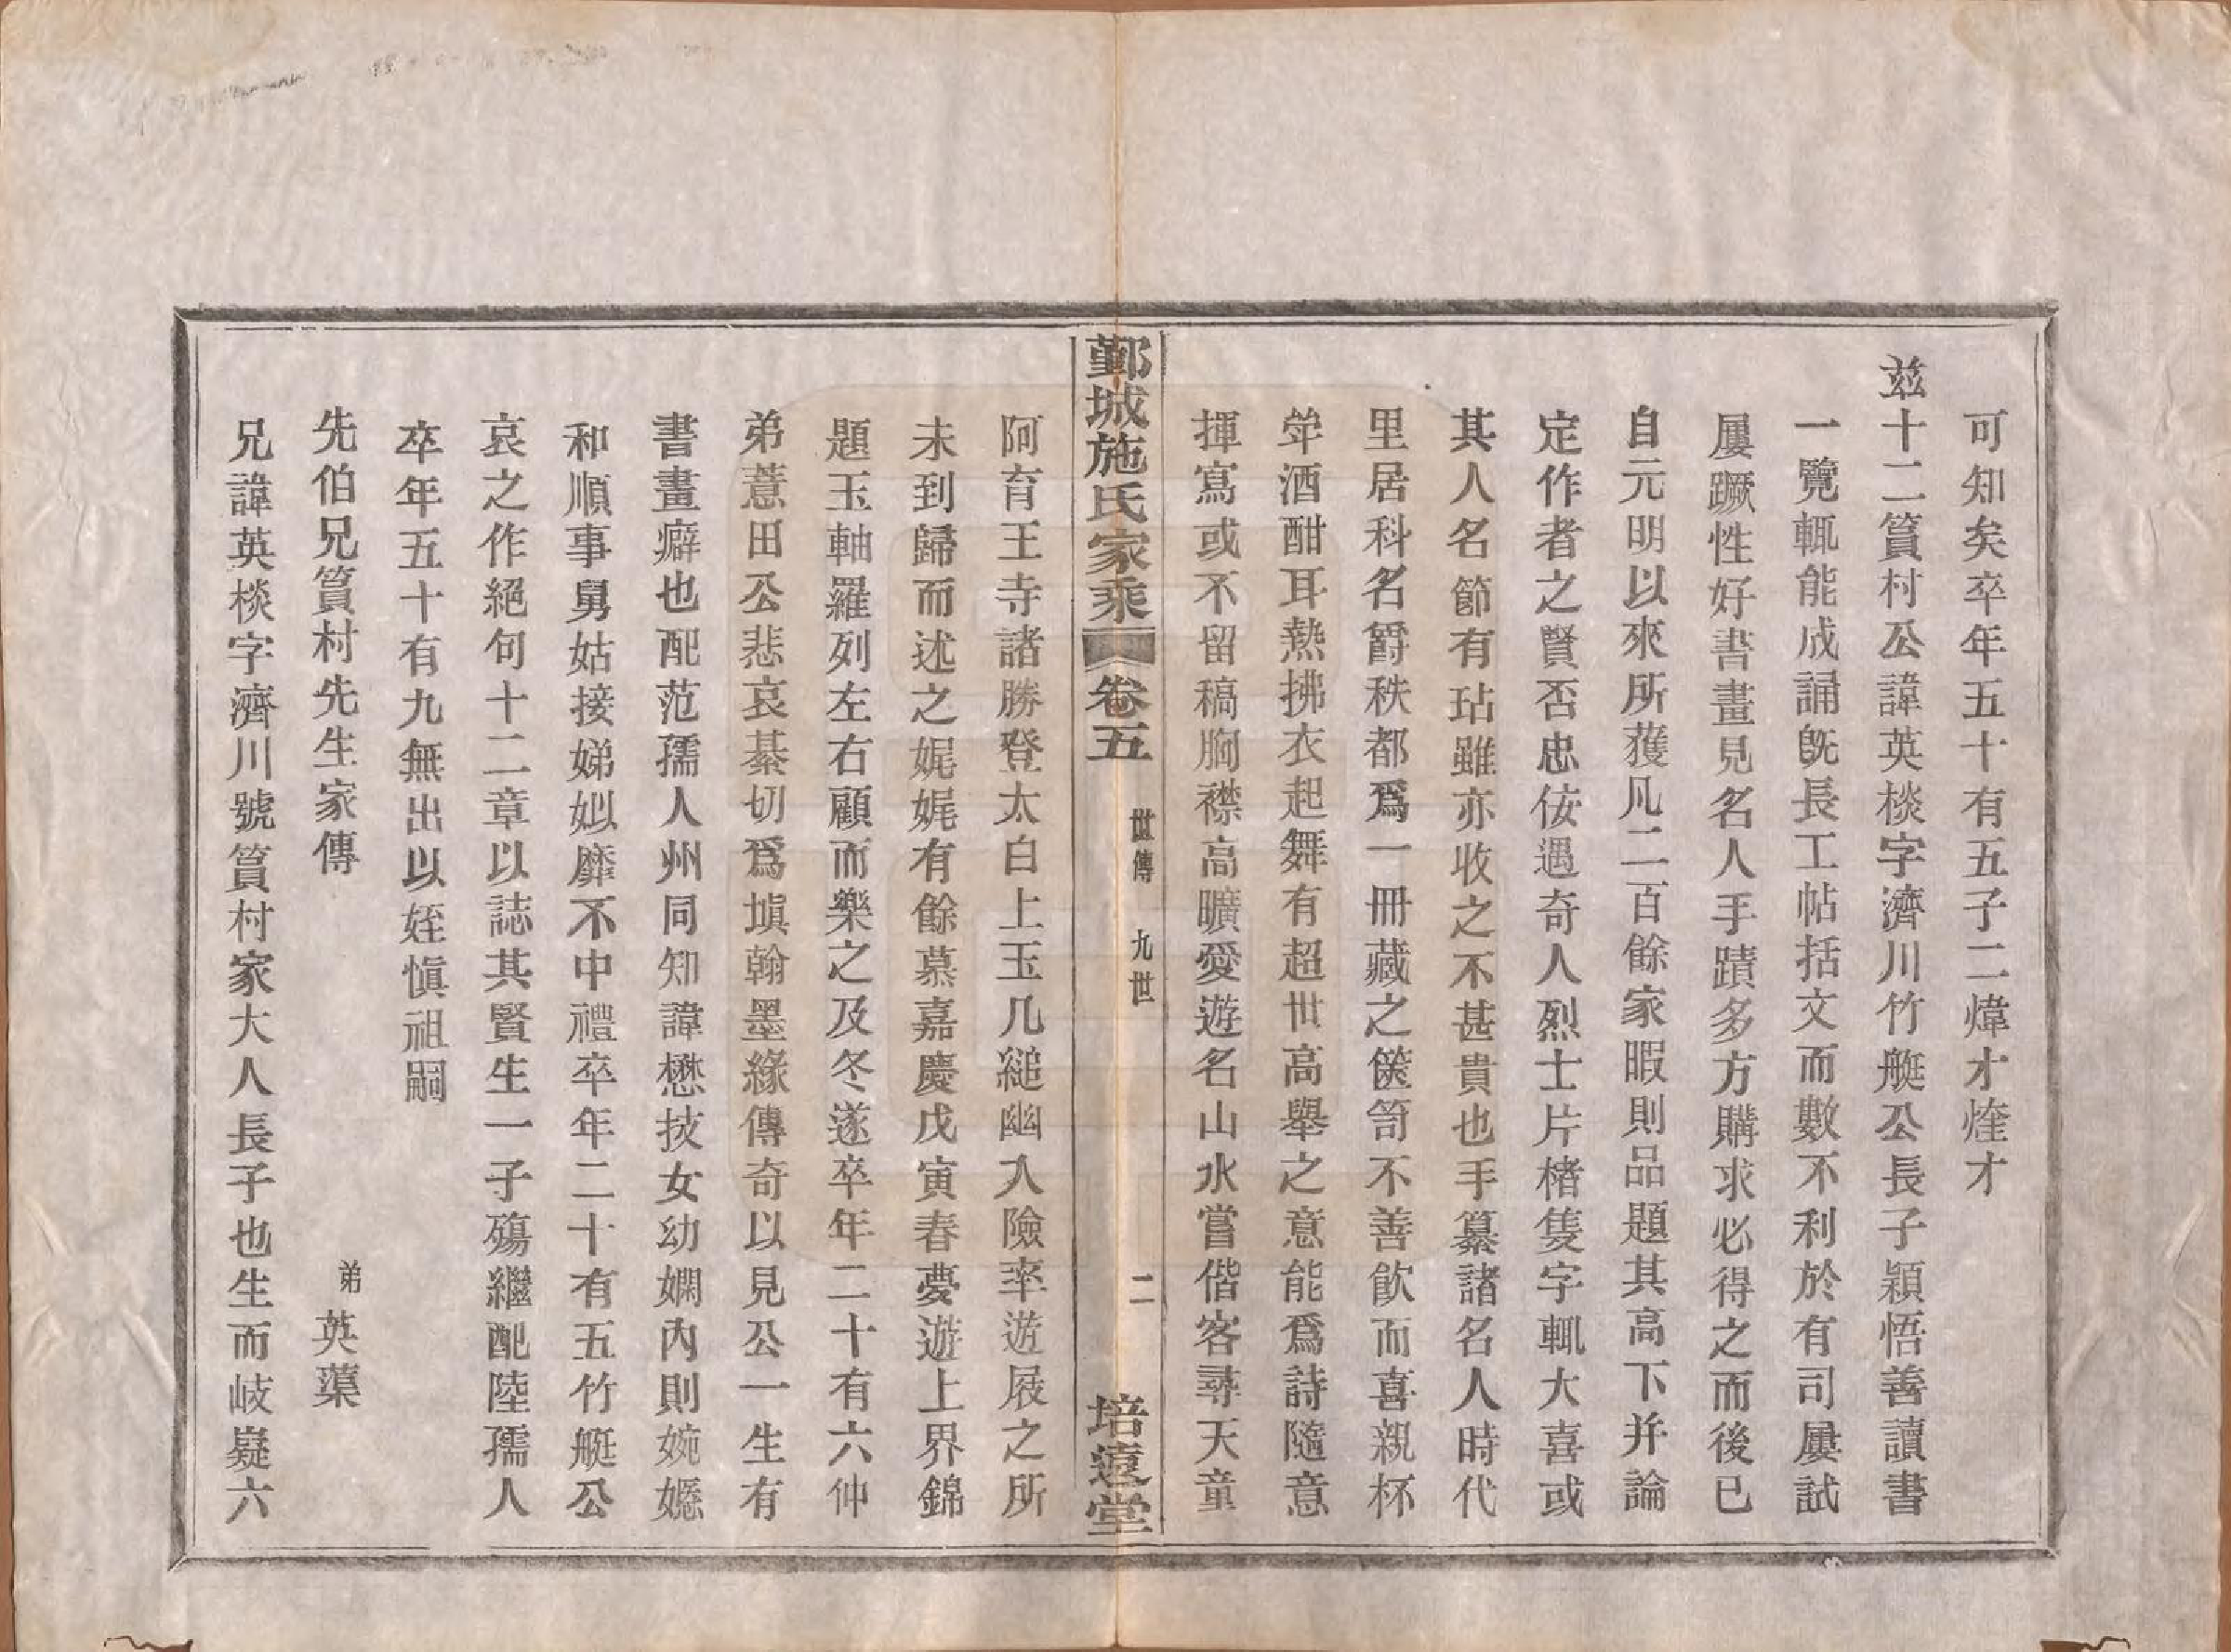 可知矣卒年五十有五子二煒才煃才
玆十二篔村公諱英棪字濟川竹艇公長子穎悟善讀書
一覽輒能成誦旣長工帖括文而數不利於有司屢試
屢蹶性好書畫見名人手蹟多方購求必得之而後已
自元明以來所獲凡二百餘家暇則品題其高下并論
定作者之賢否忠侫遇奇人烈士片楮隻字輒大喜或
其人名節有玷雖亦收之不甚貴也手纂諸名人時代
里居科名爵秩都爲一冊藏之篋笥不善飮而喜親杯
斝酒酣耳熱拂衣起舞有超世高舉之意能爲詩隨意
揮寫或不留稿胸襟高曠愛遊名山水嘗偕客尋天童
鄞城施氏家乘 卷五 世傳 九世 二 培遠堂
阿育王寺諸勝登太白上玉几縋幽入險率遊屐之所
未到歸而述之娓娓有餘慕嘉慶戊寅春夢遊上界錦
題玉軸羅列左右顧而樂之及冬遂卒年二十有六仲
弟薏田公悲哀綦切爲塡翰墨緣傳奇以見公一生有
書畫癖也配范孺人州同知諱懋技女幼嫻內則婉嫕
和順事舅姑接娣姒靡不中禮卒年二十有五竹艇公
哀之作絕句十二章以誌其賢生一子殤繼配陸孺人
卒年五十有九無出以姪愼祖嗣
先伯兄篔村先生家傳 弟英蕖
兄諱英棪字濟川號篔村家大人長子也生而岐嶷六